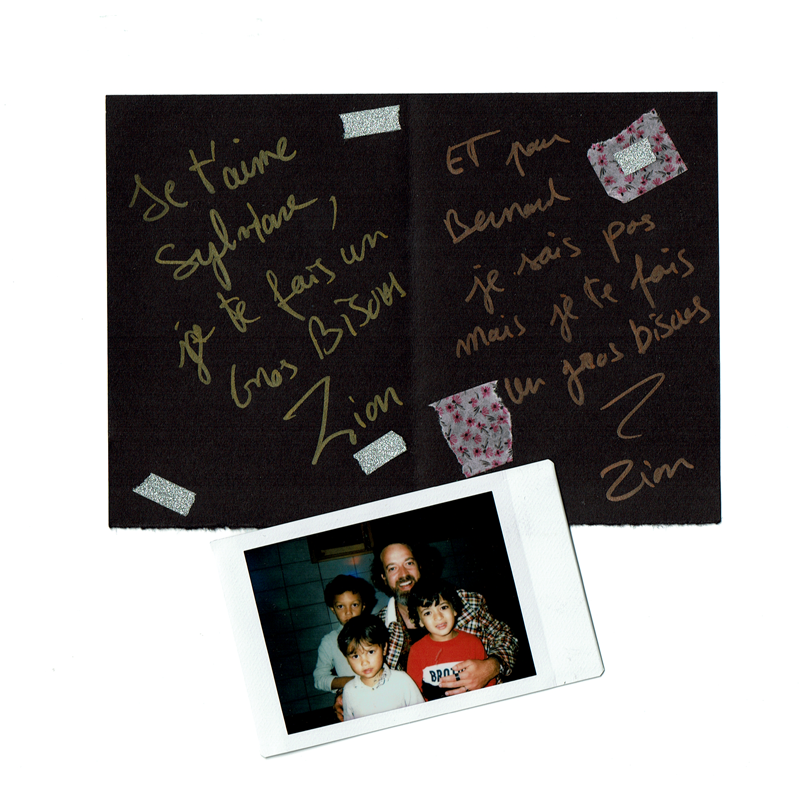 Je t'aime
Sylviane,
je te fais un
Gros Bisous
Zion
ET pour
Bernard
je sais pas
mais je te fais
un gros bisous
Zion
BRO